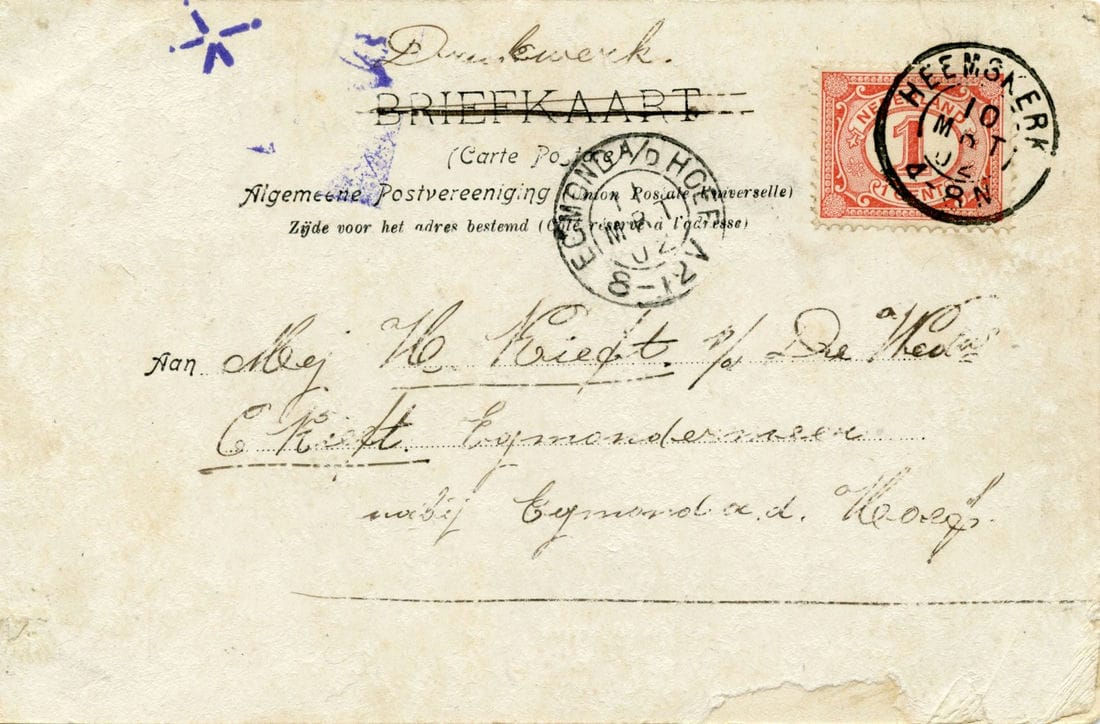 Drukwerk.
BRIEFKAART
(Carte Postale)
Algemeene Postvereeniging (Union Postale Universelle)
Zijde voor het adres bestemd (Côté réservé à l'adresse)
NEDERLAND
1
1 CENT
HEEMSKERK
10
MRT
4-8N
EGMOND A/D HOEF
MRT
02
8-12V
Aan Mej H. Kieft. p/a De Wed
C Kieft. Egmondermeer
nabij Egmond a.d. Hoef.